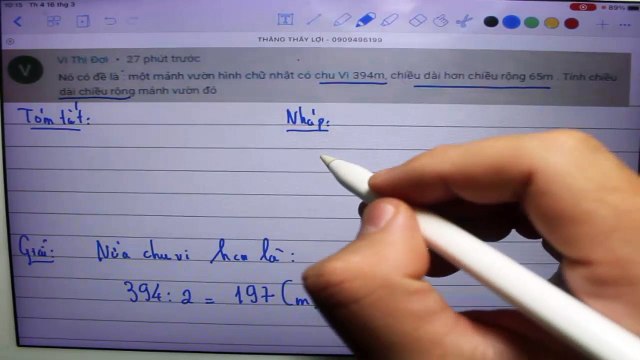 10:15 Th 4 16 thg 3
89%
THẮNG THẦY LỢI - 0909496199
V
Vi Thị Đơi • 27 phút trước
Nó có đề là : một mảnh vườn hình chữ nhật có chu Vi 394m, chiều dài hơn chiều rộng 65m . Tính chiều
dài chiều rộng mảnh vườn đó
Tóm tắt:
Nháp:
Giải: Nửa chu vi hcn là:
394 : 2 = 197 (m